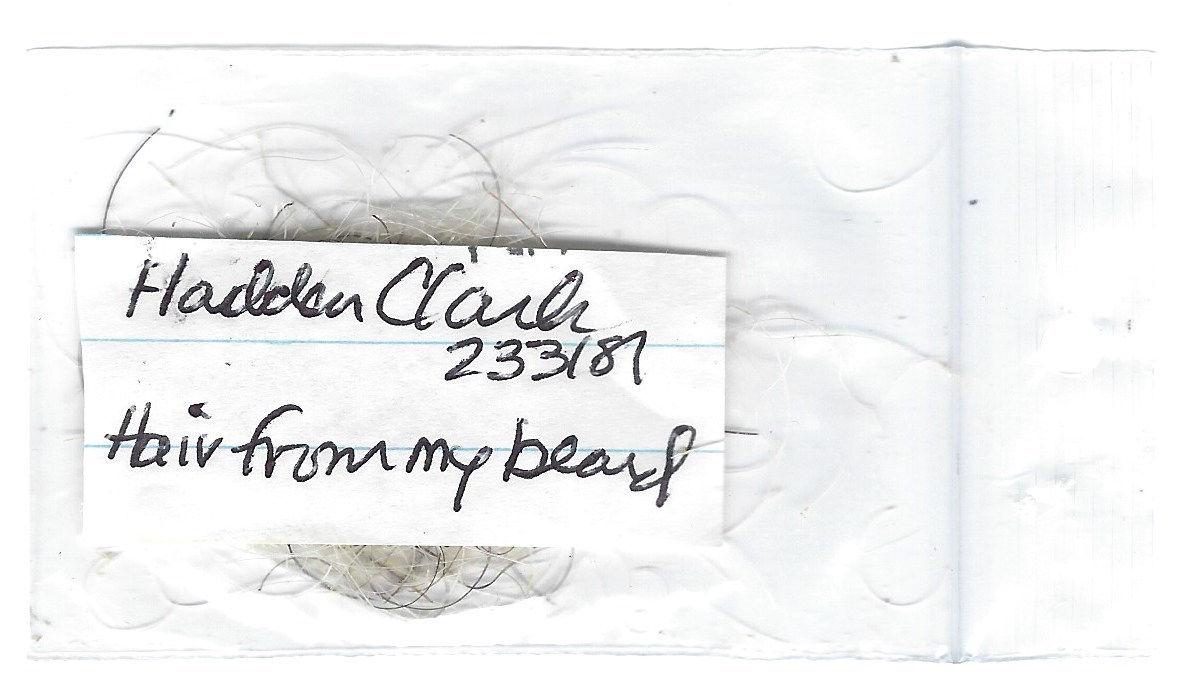 Hadden Clark
233181
Hair from my beard